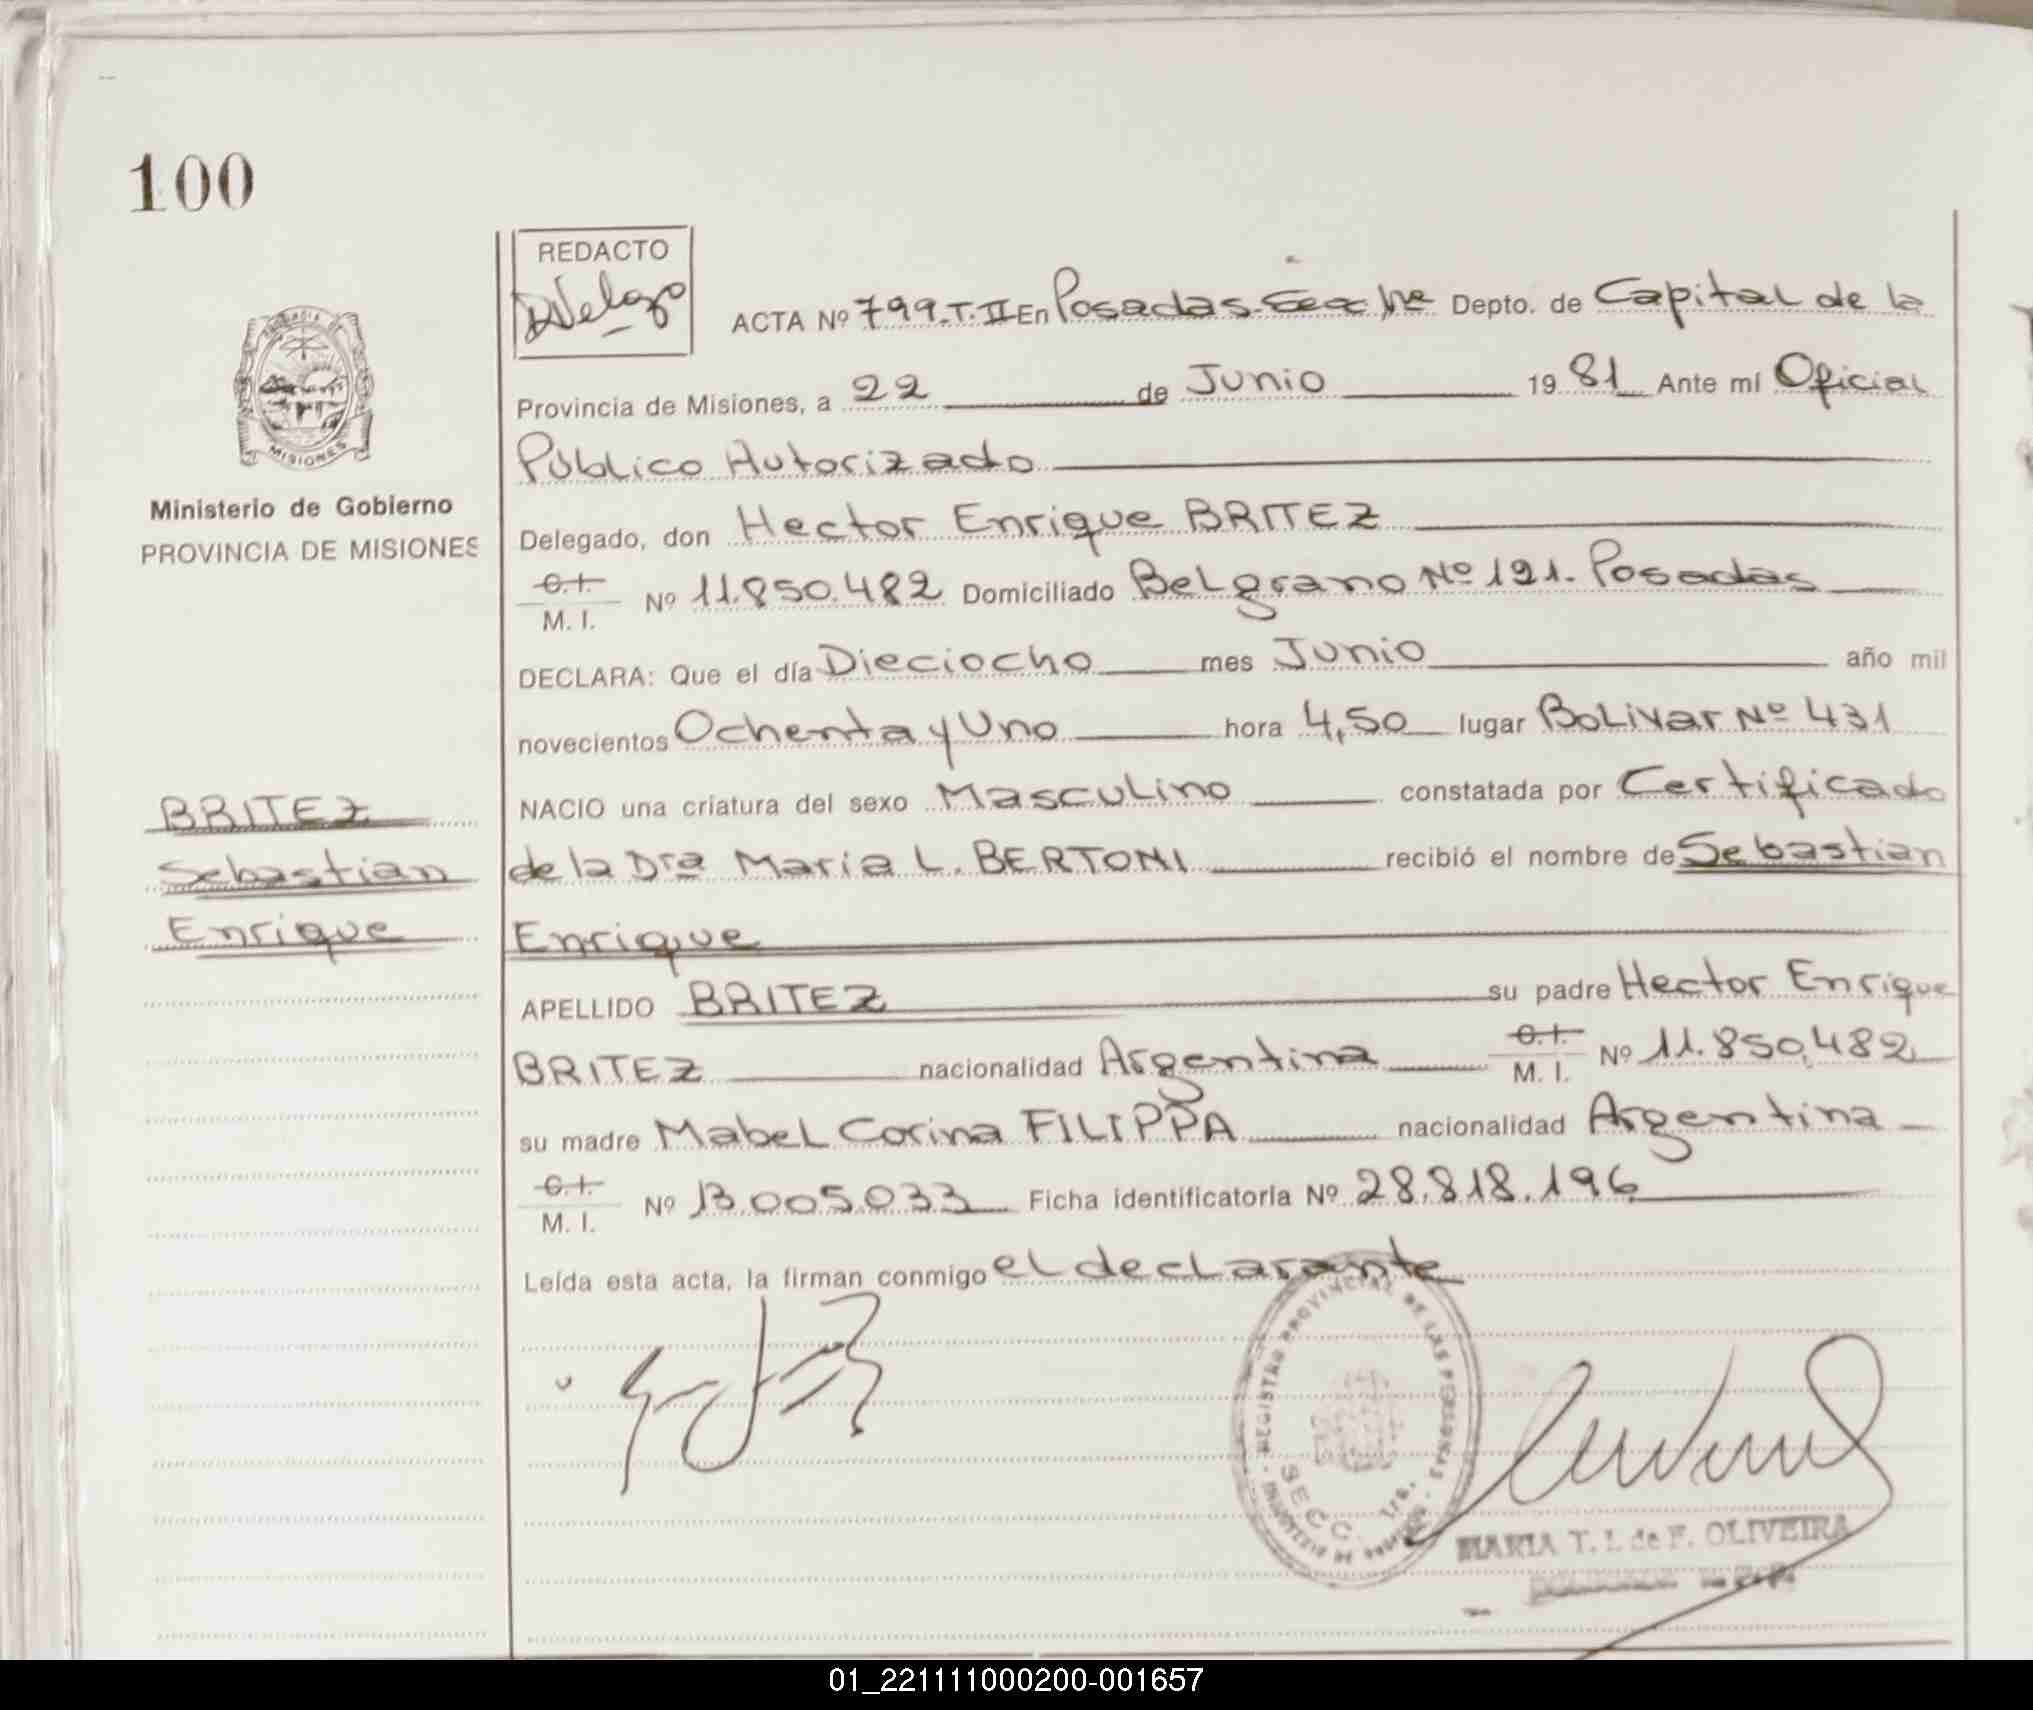 100
REDACTO
Delego
ACTA Nº 799.T.II En Posadas Secc 1ra Depto. de Capital de la
Provincia de Misiones, a 22 de Junio 19 81 Ante mí Oficial
Público Autorizado
Delegado, don Hector Enrique BRITEZ
C.I.
M. I. Nº 11.850.482 Domiciliado Belgrano Nº 191. Posadas
DECLARA: Que el día Dieciocho mes Junio año mil
novecientos Ochenta y Uno hora 4,50 lugar Bolivar Nº 431
NACIO una criatura del sexo Masculino constatada por Certificado
de la Dra Maria L. BERTONI recibió el nombre de Sebastian
Enrique
APELLIDO BRITEZ su padre Hector Enrique
BRITEZ nacionalidad Argentina C.I. M. I. Nº 11.850.482
su madre Mabel Corina FILIPPA nacionalidad Argentina
C.I.
M. I. Nº 13.005.033 Ficha identificatoria Nº 28.818.196
Leída esta acta, la firman conmigo el declarante
MISIONES
Ministerio de Gobierno
PROVINCIA DE MISIONES
BRITEZ
Sebastian
Enrique
REGISTRO PROVINCIAL DE LAS PERSONAS
SECC. 1ra.
MARIA T. I. de F. OLIVEIRA
01_221111000200-001657